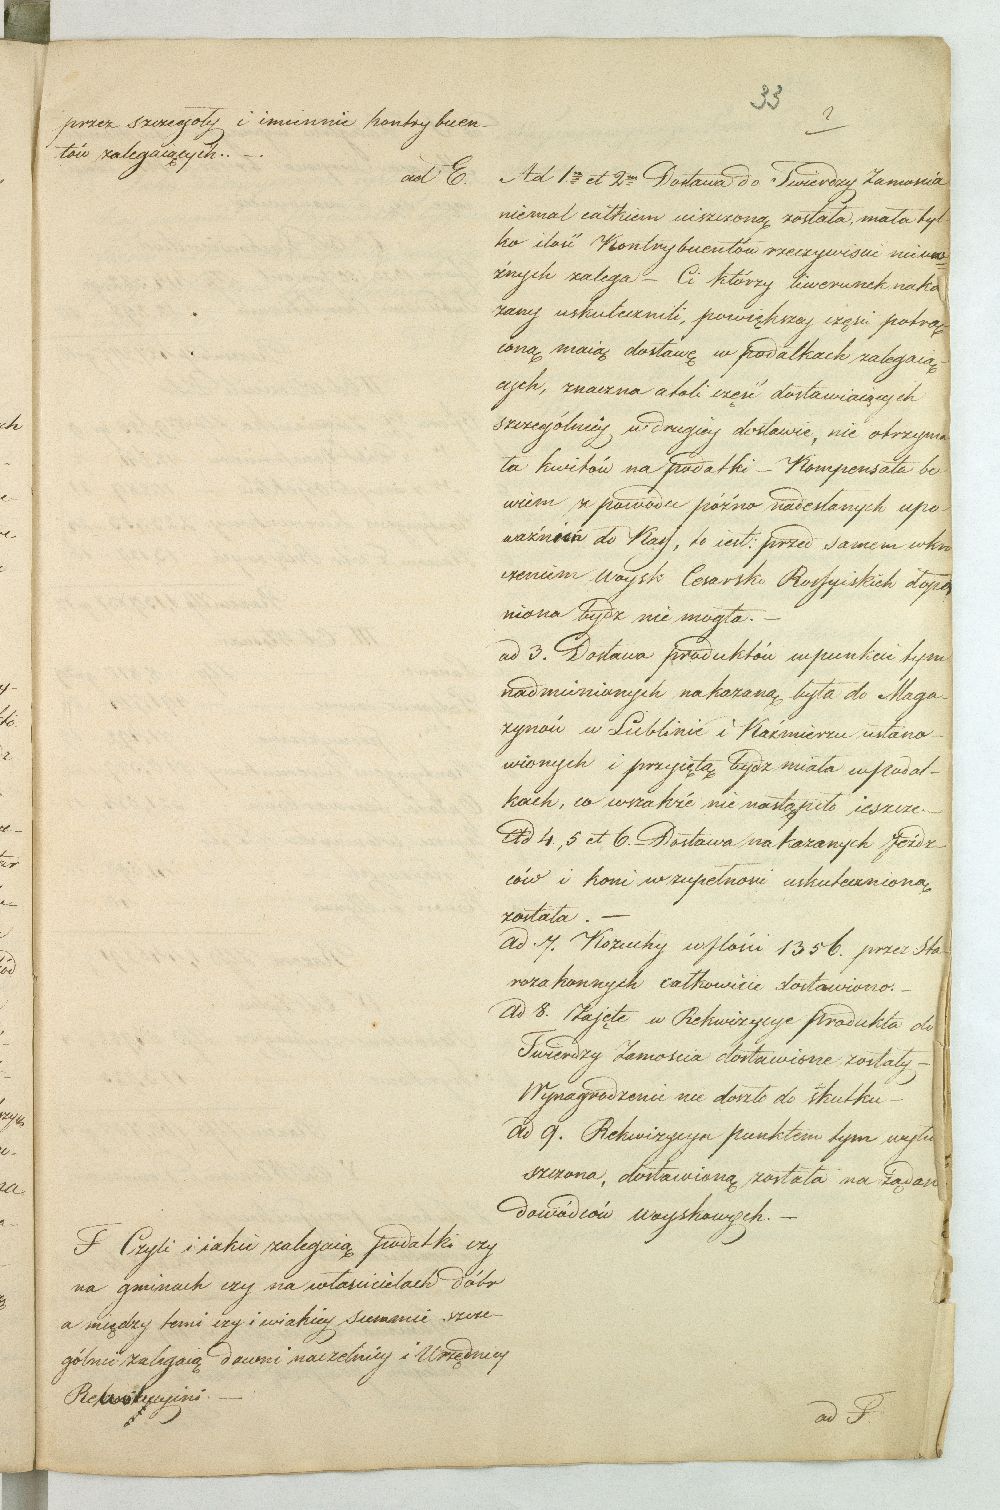 33
2
przez szczegoły i imiennie kontrybuen-
tów zalegaiących. —
ad E.
Ad 1mo et 2m Dostawa do Twierdzy Zamościa
niemal całkiem uiszczoną została, mała tyl-
ko ilość Kontrybuentów rzeczywiście niemo-
żnych zalega — Ci którzy liwerunek naka
zany uskutecznili, powiększey części potrą-
coną maią dostawę w podatkach zalegaią-
cych, znaczna atoli część dostawiaiących
szczególniey w drugiey dostawie, nie otrzyma
ła kwitów na podatki — Kompensata bo
wiem z powodu późno nadesłanych upo-
ważnień do Kass, to iest: przed samem wkro
czeniem woysk Cesarsko Rossyiskich dopeł
niona bydz nie mogła. —
ad 3. Dostawa produktów w punkcie tym
nadmienionych nakazaną była do Maga-
zynów w Lublinie i Kaźmierzu ustano-
wionych i przyiętą bydz miała w podat-
kach, co wszakże nie nastąpiło ieszcze —
Ad 4, 5 et 6. Dostawa nakazanych Jeźdz-
ców i koni w zupełności uskutecznioną
została. —
ad 7. Kożuchy w Ilości 1356. przez Sta-
rozakonnych całkowicie dostawiono. —
ad 8. Zajęte w Rekwizycye produkta do
Twierdzy Zamościa dostawione zostały —
Wynagrodzenie nie doszło do skutku —
ad 9. Rekwizycya punktem tym wyłu
szczona, dostawioną została na żądan
dowódców woyskowych. —
F Czyli i iakie zalegaią podatki czy
na gminach czy na właścicielach dóbr
a między temi czy i w iakiey summie szcze-
gólnie zalegaią dawni naczelnicy i Urzędnicy
Rewolucyini. —
ad F.